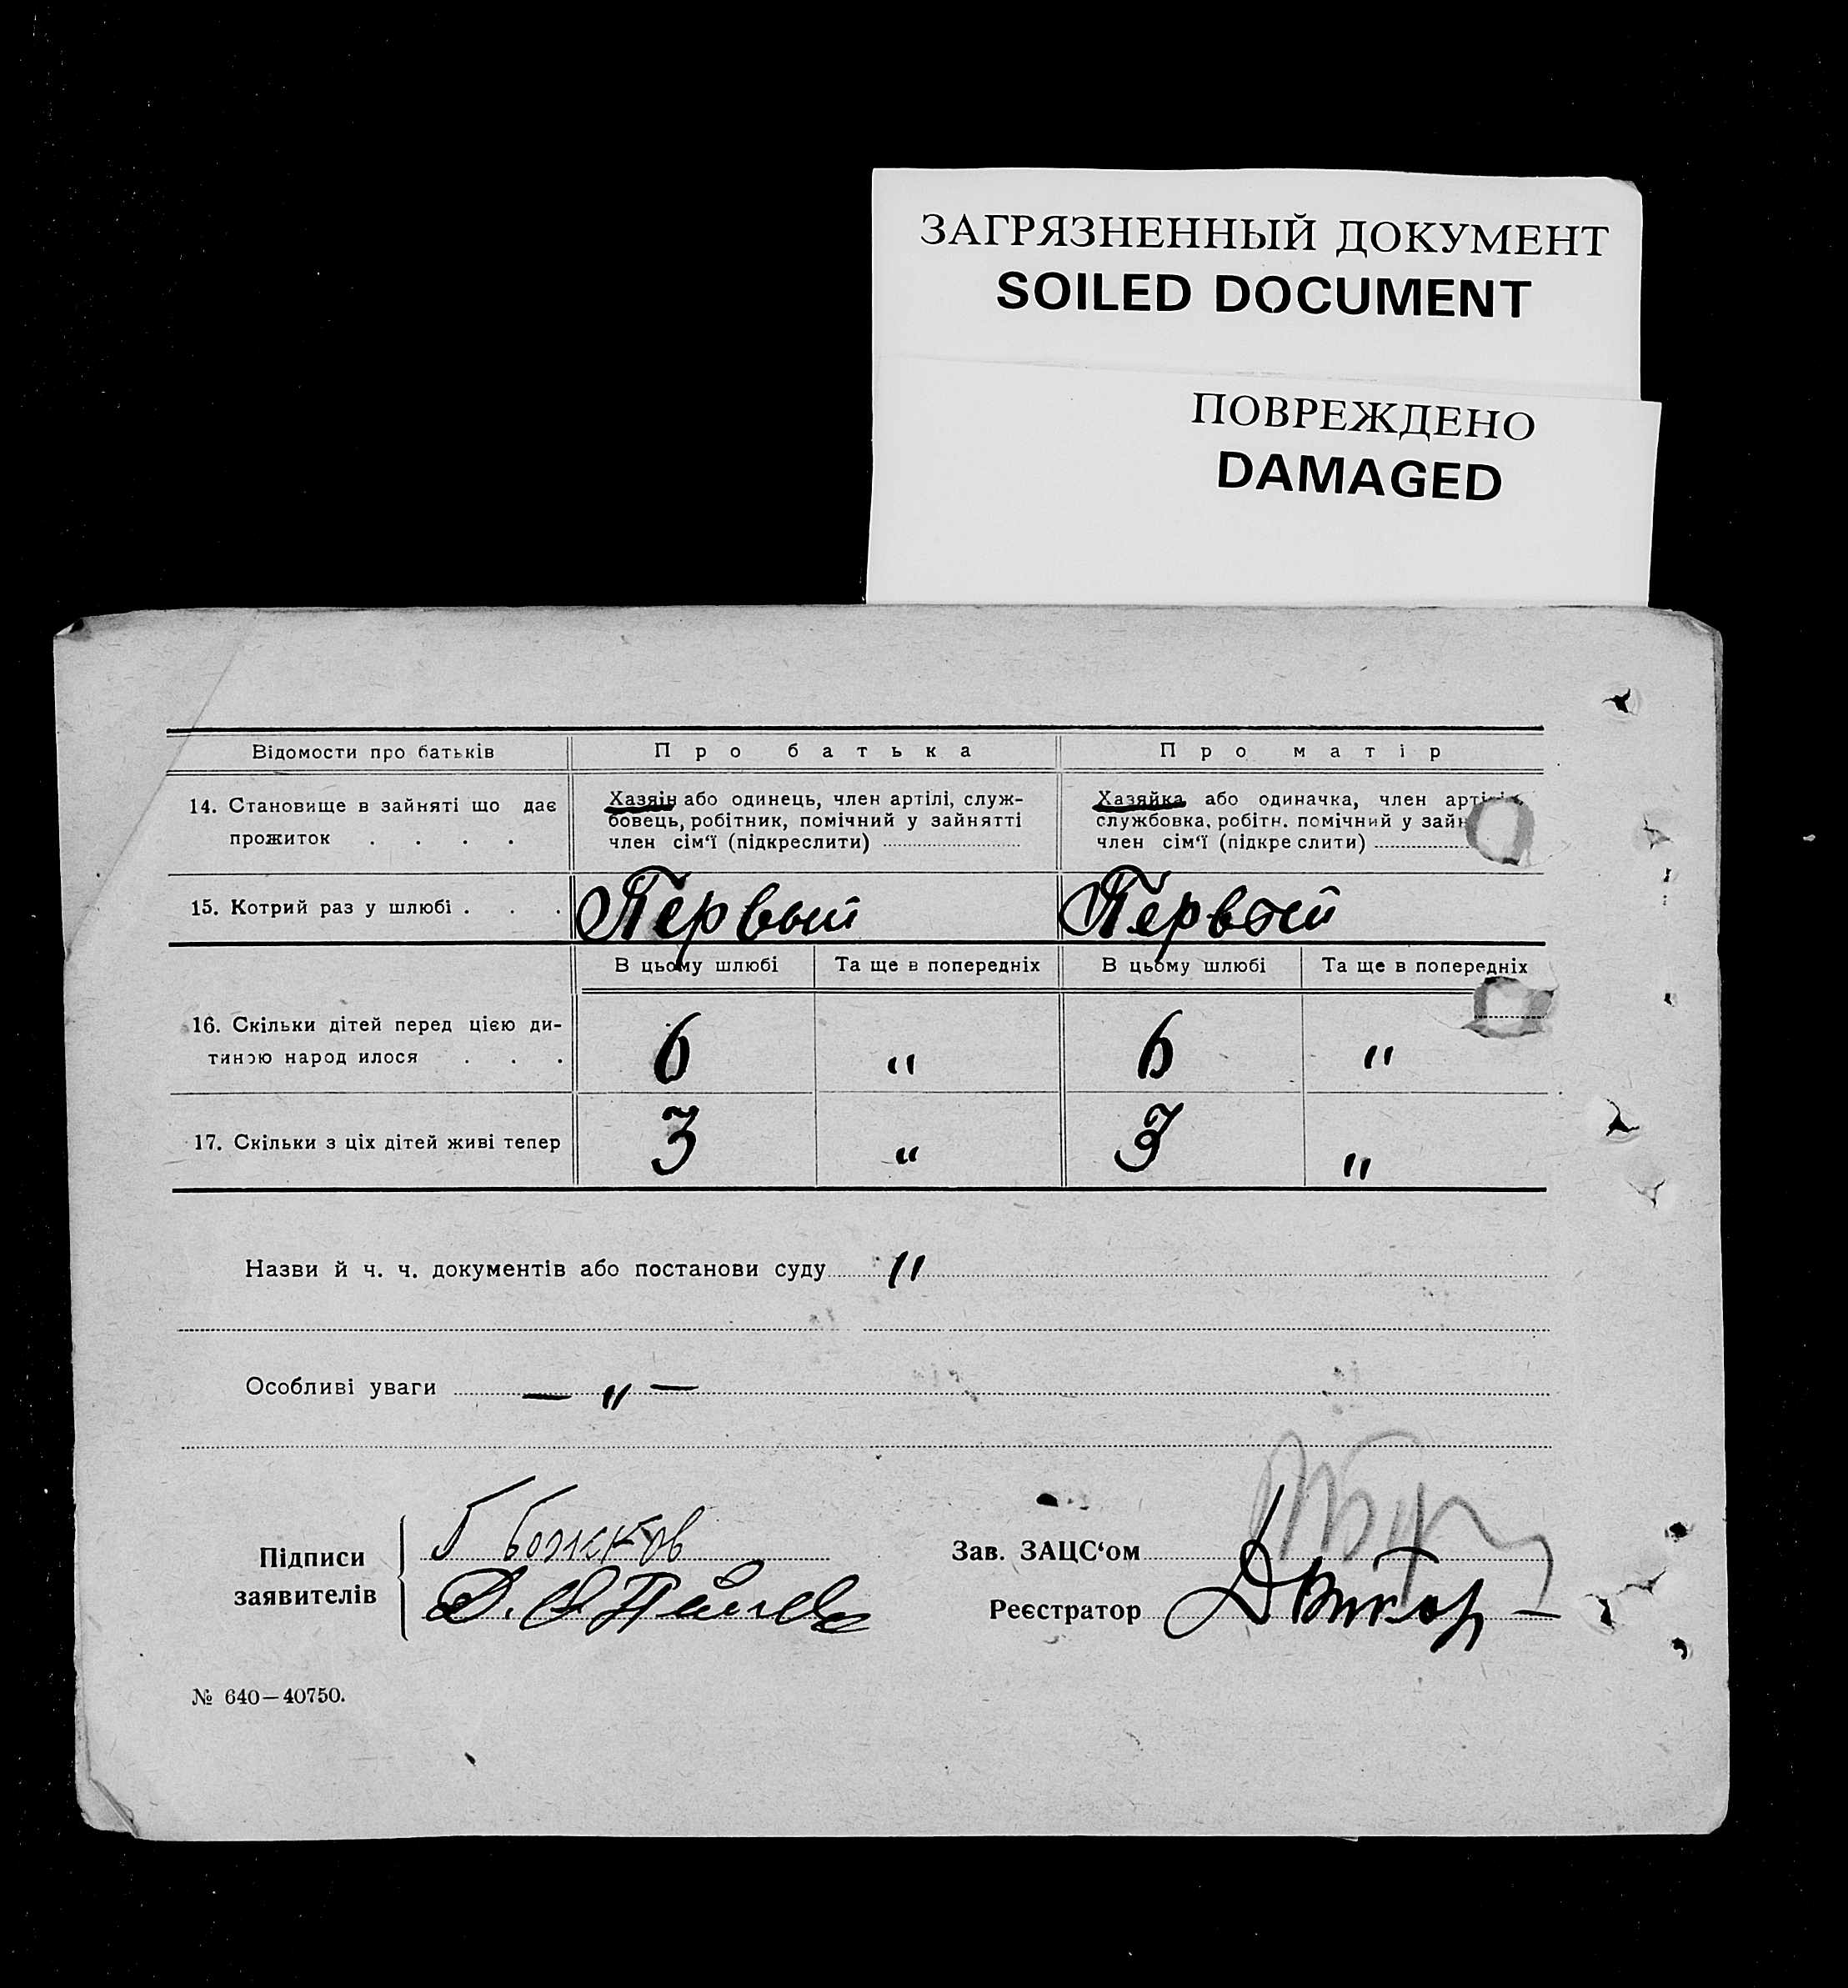 ЗАГРЯЗНЕННЫЙ ДОКУМЕНТ
SOILED DOCUMENT
ПОВРЕЖДЕНО
DAMAGED
Відомости про батьків
Про батька
Про матір
14. Становище в зайняті що дає
прожиток . . . .
Хазяін або одинець, член артілі, служ-
бовець, робітник, помічний у зайнятті
член сім'ї (підкреслити)
Хазяйка або одиначка, член артілі,
службовка, робітн. помічний у зайн
член сім'ї (підкре слити)
15. Котрий раз у шлюбі . . .
Первый
Первый
В цьому шлюбі
Та ще в попередніх
В цьому шлюбі
Та ще в попередніх
16. Скільки дітей перед цією ди-
тиною народ илося . . .
6
"
6
"
17. Скільки з ціх дітей живі тепер
3
"
3
"
Назви й ч. ч. документів або постанови суду "
Особливі уваги — " —
Підписи
заявителів
Г Божков
Зав. ЗАЦС'ом
Реєстратор
№ 640—40750.